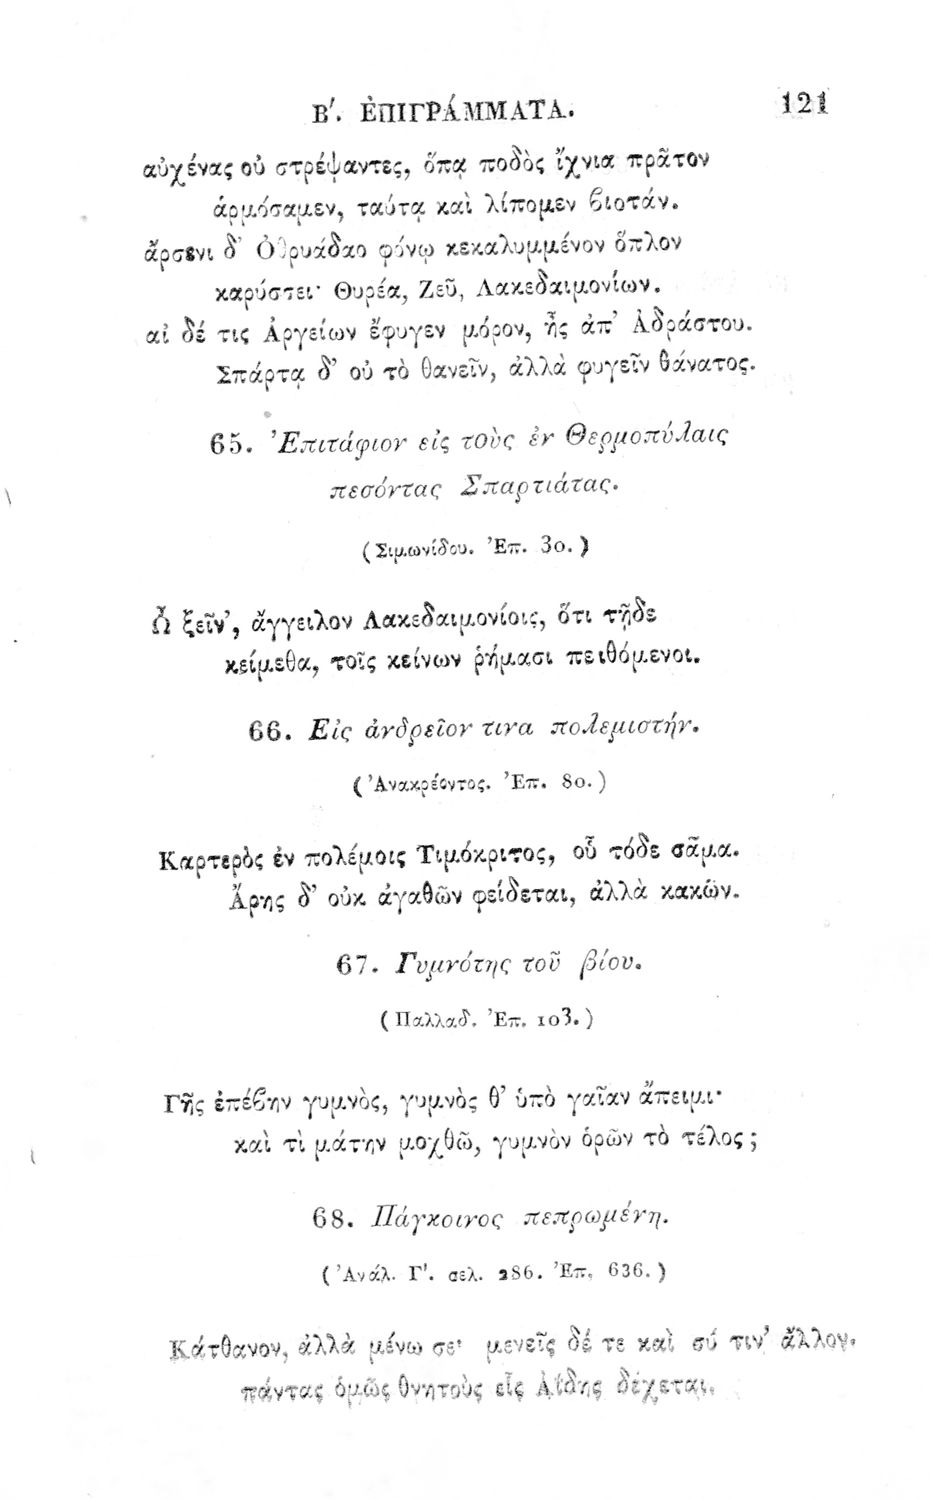 Β'. ἘΠΙΓΡΆΜΜΑΤΑ. 121
αὐχένας οὐ στρέψαντες, ὅπᾳ ποδὸς ἴχνια πρᾶτον
ἁρμόσαμεν, ταύτᾳ καὶ λίπομεν βιοτάν.
ἄρσενι δ' Ὀθρυάδαο φόνῳ κεκαλυμμένον ὅπλον
καρύσσει· Θυρέα, Ζεῦ, Λακεδαιμονίων.
αἰ δέ τις Ἀργείων ἔφυγεν μόρον, ἦς ἀπ' Ἀδράστου.
Σπάρτᾳ δ' οὐ τὸ θανεῖν, ἀλλὰ φυγεῖν θάνατος.
65. Ἐπιτάφιον εἰς τοὺς ἐν Θερμοπύλαις
πεσόντας Σπαρτιάτας.
(Σιμωνίδου. Ἐπ. 30.)
Ὦ ξεῖν', ἄγγειλον Λακεδαιμονίοις, ὅτι τῇδε
κείμεθα, τοῖς κείνων ῥήμασι πειθόμενοι.
66. Εἰς ἀνδρεῖον τινα πολεμιστήν.
(Ἀνακρέοντος. Ἐπ. 80.)
Καρτερὸς ἐν πολέμοις Τιμόκριτος, οὗ τόδε σᾶμα.
Ἄρης δ' οὐκ ἀγαθῶν φείδεται, ἀλλὰ κακῶν.
67. Γυμνότης τοῦ βίου.
(Παλλαδ. Ἐπ. 103.)
Γῆς ἐπέβην γυμνὸς, γυμνὸς θ' ὑπὸ γαῖαν ἄπειμι·
καὶ τὶ μάτην μοχθῶ, γυμνὸν ὁρῶν τὸ τέλος;
68. Πάγκοινος πεπρωμένη.
(Ἀνάλ. Γ'. σελ. 286. Ἐπ. 636.)
Κάτθανον, ἀλλὰ μένω σε· μενεῖς δέ τε καὶ σύ τιν' ἄλλον.
πάντας ὁμῶς θνητοὺς εἷς Ἀΐδης δέχεται.